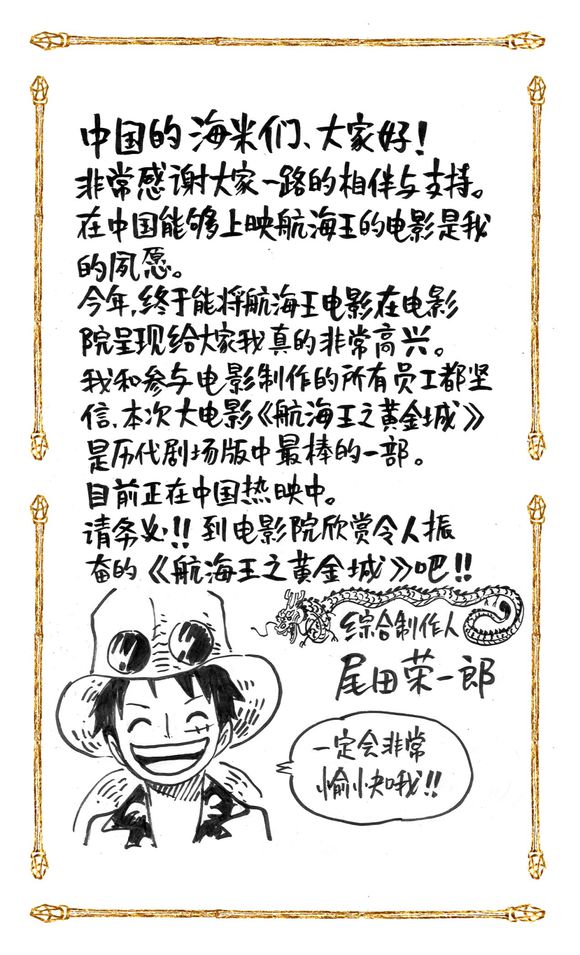 中国的海米们、大家好!
非常感谢大家一路的相伴与支持。
在中国能够上映航海王的电影是我
的夙愿。
今年,终于能将航海王电影在电影
院呈现给大家我真的非常高兴。
我和参与电影制作的所有员工都坚
信,本次大电影《航海王之黄金城》
是历代剧场版中最棒的一部。
目前正在中国热映中。
请务必!! 到电影院欣赏令人振
奋的《航海王之黄金城》吧!!
综合制作人
尾田荣一郎
一定会非常
愉快哦!!